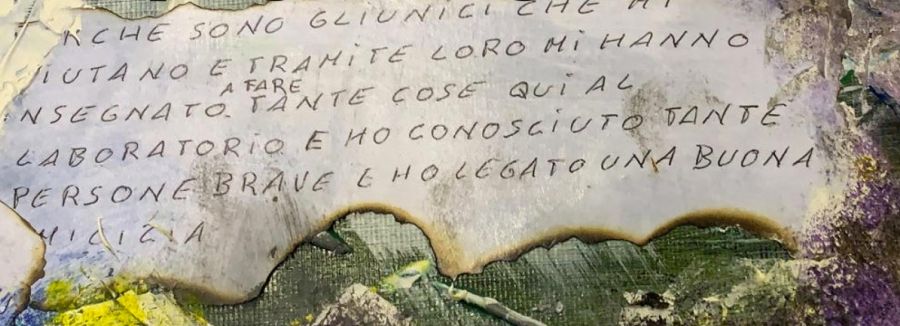 RCHE SONO GLI UNICI CHE MI
IUTANO E TRAMITE LORO MI HANNO
NSEGNATO A FARE TANTE COSE QUI AL
LABORATORIO E HO CONOSCIUTO TANTE
PERSONE BRAVE E HO LEGATO UNA BUONA
MICIZIA